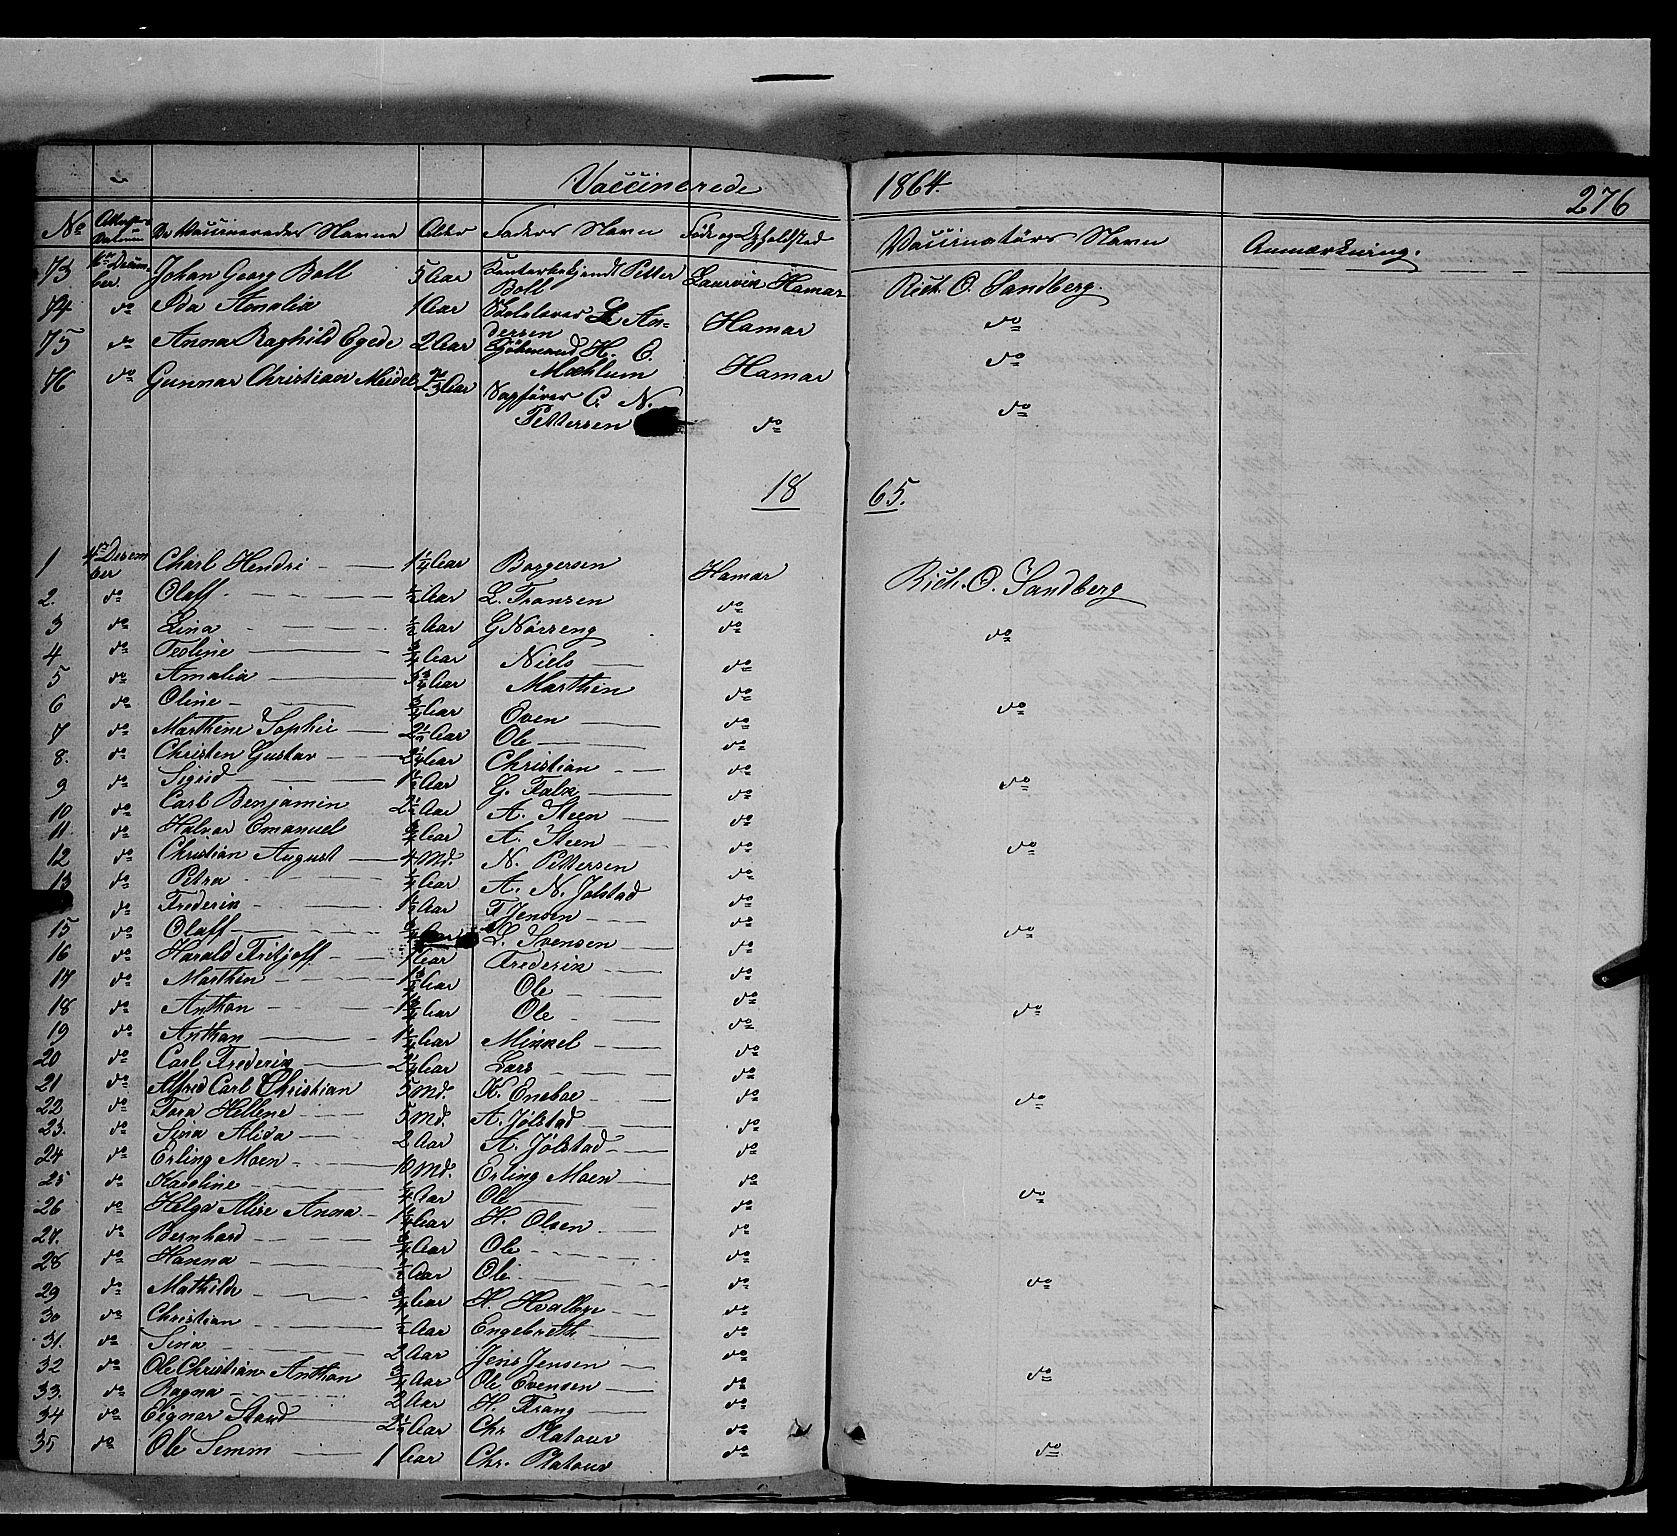 Vaccinerede 1864. 276
No Attestens Datum De Vaccineredes Navne Alder Faders Navn Føde og Opholdsted Vaccinatørs Navn Anmærkning.
73 December. Johan Georg Boll 5 Aar Petter Boll Laurvix Hamar Rich. O. Sandberg.
74 do Ida Amalia 1 Aar Andersen Hamar do
75 do Anna Raghild Egede 2 Aar H. O. Mæhlum Hamar do
76 do Gunnar Christian Meidel Aar C. N. Pettersen do do
1865.
1 December Charl Hendri 1 1/4 Aar Borgersen Hamar Rich. O. Sandberg
2. do Olaff 1/2 Aar L. Fransen do
3 do Lina 1/2 Aar G Nørseng do do
4 do Teoline 3/4 Aar Niels do
5 do Amalia Aar Marthin do
6 do Oline 3/4 Aar Even do do
7 do Marthine Sophie 2 1/2 Aar Ole do
8. do Christen Gustav 2 1/4 Aar Christian do
9 do Sigrid Aar G. Falx do do
10 do Carl Benjamin 2 1/2 Aar A. Steen do
11. do Halvar Emanuel 3/4 Aar A. Steen do
12 do Christian August 4 Md. N. Pettersen do do
13 do Petra Aar A. N. Jølstad do
do Frederix 1 1/2 Aar F Jensen do
15 do Olaff Aar L. Svensen do do
16 do Harald Fritjoff 1 Aar Frederix do
17 do Marthin Aar Ole do
18 do Anthon Aar Ole do do
19 do Anthon 1 1/4 Aar Mixxel do
20 do Carl Frederix 2 1/4 Aar Lars do
21 do Alfred Carl Christian 5 Md. K. Eneboe do
22 do Tora Hellene 5 Md. A. Jølstad do do
23. do Sina Alida 2 Aar A. Jølstad do
24 do Erling Moen 10 Md. Erling Moen do
25 do Karoline Aar Ole do
26 do Helga Alise Anna Aar H. Olsen do
27. do Bernhard 3/4 Aar Ole do
28 do Hanna 1/2 Aar Ole do
29 do Mathilde 3/4 Aar H. Hvalbye do do
30 do Christian 1/2 Aar Engebreth do
31. do Sina 2 Aar Jens Jensen do
32 do Ole Christian Anthon 3/4 Aar Ole Evensen do do
33. do Ragna 2 Aar H. Frang do
34 do Eignar 2 1/2 Aar Chr Platour do
35 do Ole Semm 1 Aar Chr. Platour do do